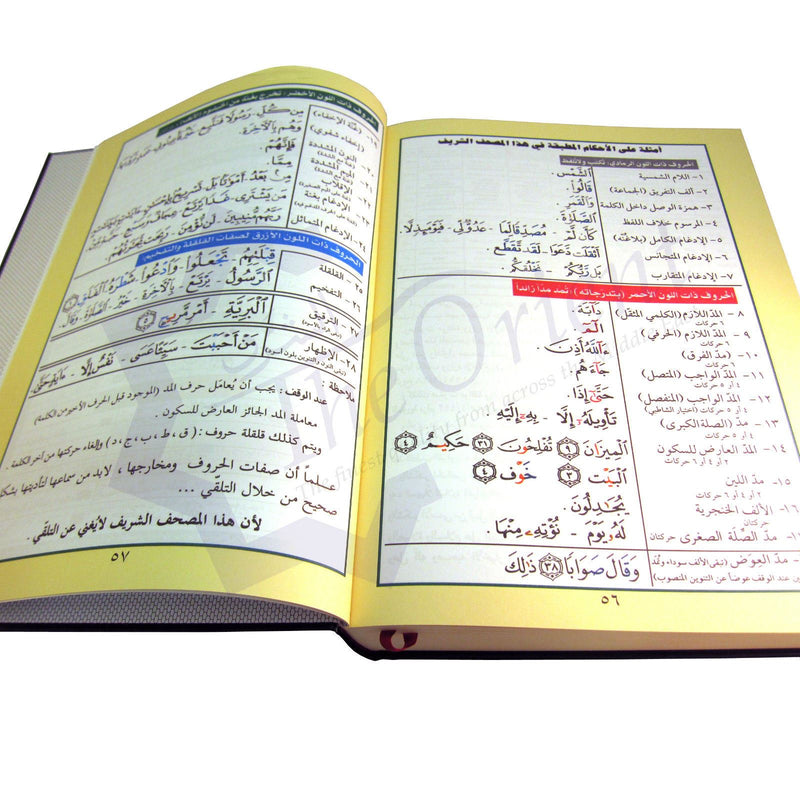 أمثلة على الأحكام المطبقة في هذا المصحف الشريف
الحروف ذات اللون الرمادي: تكتب ولاتلفظ
١- اللام الشمسية الشَّمْسُ
٢- ألف التفريق (الجماعة) قَالُوا۟
٣- همزة الوصل داخل الكلمة وَالْقَمَرِ
٤- المرسوم خلاف اللفظ الصَّلَوٰةَ
٥- الإدغام الكامل (بلاغنّة) كَأَن لَّمْ - مُصَدِّقًا لِّمَا - عَدُوٌّ لِّي - فَوَيْلٌ لِّلَّذِينَ
٦- الإدغام المتجانس أَثْقَلَت دَّعَوَا - لَقَد تَّقَطَّعَ
٧- الإدغام المتقارب بَل رَّبُّكُمْ - نَخْلُقكُّم
الحروف ذات اللون الأحمر (بتدرجاته): تُمد مداً زائداً
٨- المدّ اللازم (الكلمي المثقل) دَآبَّةٍ
٦ حركات
٩- المدّ اللازم (الحرفي) الٓمٓ
٦ حركات
١٠- (مدّ الفرق) ءَآللَّهُ أَذِنَ
١١- المدّ الواجب (المتصل) جَآءَهُم
٤ أو ٥ حركات
١٢- المدّ الواجب (المنفصل) حَتَّىٰٓ إِذَا
٤ أو ٥ حركات (اختيار الشاطبي)
١٣- مدّ (الصلة الكبرى) تَأْوِيلَهُۥٓ إِلَّا - بِهِۦٓ إِلَيْهِ
٤ أو ٥ حركات
١٤- المدّ العارض للسكون الْمِيزَانَ ٩ تُفْلِحُونَ ٣١ حَكِيمٌ ٤
٢ أو ٤ أو ٦ حركات
١٥- مدّ اللين الْبَيْتِ ٣ خَوْفٍ ٤
٢ أو ٤ أو ٦ حركات
١٦- الألف الخنجرية يُجَٰدِلُونَ
حركتان
مدّ الصِّلَة الصغرى حركتان لَهُۥ يَوْمَ - نُؤْتِهِۦ مِنْهَا
مدّ العِوَض (تبقى الألف سوداء وتُمد وَقَالَ صَوَابًا ٣٨ ذَٰلِكَ
عند الوقف عوضاً عن التنوين المنصوب)
٥٦
الحروف ذات اللون الأخضر: تخرج بغنة من
(غنّة الإخفاء) مِن كُلِّ - رَسُولًا
(إخفاء شفوي) وَهُم بِالْآخِرَةِ
النون المشددة فَإِنَّهُمْ
الميم المشددة مِمَّا
الإقلاب مِنۢ بَعْدُ
الإدغام بغنة مَن يَشْرِى
٢٤- الإدغام المتماثل
الحروف ذات اللون الأزرق لصفات القلقلة والتفخيم:
٢٥- القلقلة قِبْلَتِهِمْ - تَجْعَلُوا - وَادْعُوا - شَطْرَهُ - الْفَلَقِ
٢٦- التفخيم الرَّسُولُ - يَرْتَعْ - بِالْآخِرَةِ - خَيْرٌ - الصَّلَاةَ - قَالَ
٢٧- الترقيق الْبَرِيَّةِ - أَمْرٍ مَّرِيجٍ ٥
٢٨- الإظهار مَنْ أَحْبَبْتَ - سَيِّئًا عَسَى - نَفْسٌ إِلَّا
ملاحظة: عند الوقف: يجب أن يُعامَل حرف المد (الموجود قبل الحرف الأخير من الكلمة)
معاملة المد الجائز العارض للسكون.
ويتم كذلك قلقلة حروف: (ق، ط، ب، ج، د) وإلغاء حركتها من آخر الكلمة.
علماً أن صفات الحروف ومخارجها، لابد من سماعها لتأديتها بشكل
صحيح من خلال التلقّي ...
لأن هذا المصحف الشريف لايُغني عن التلقّي.
٥٧
The Orient
The finest quality from across the